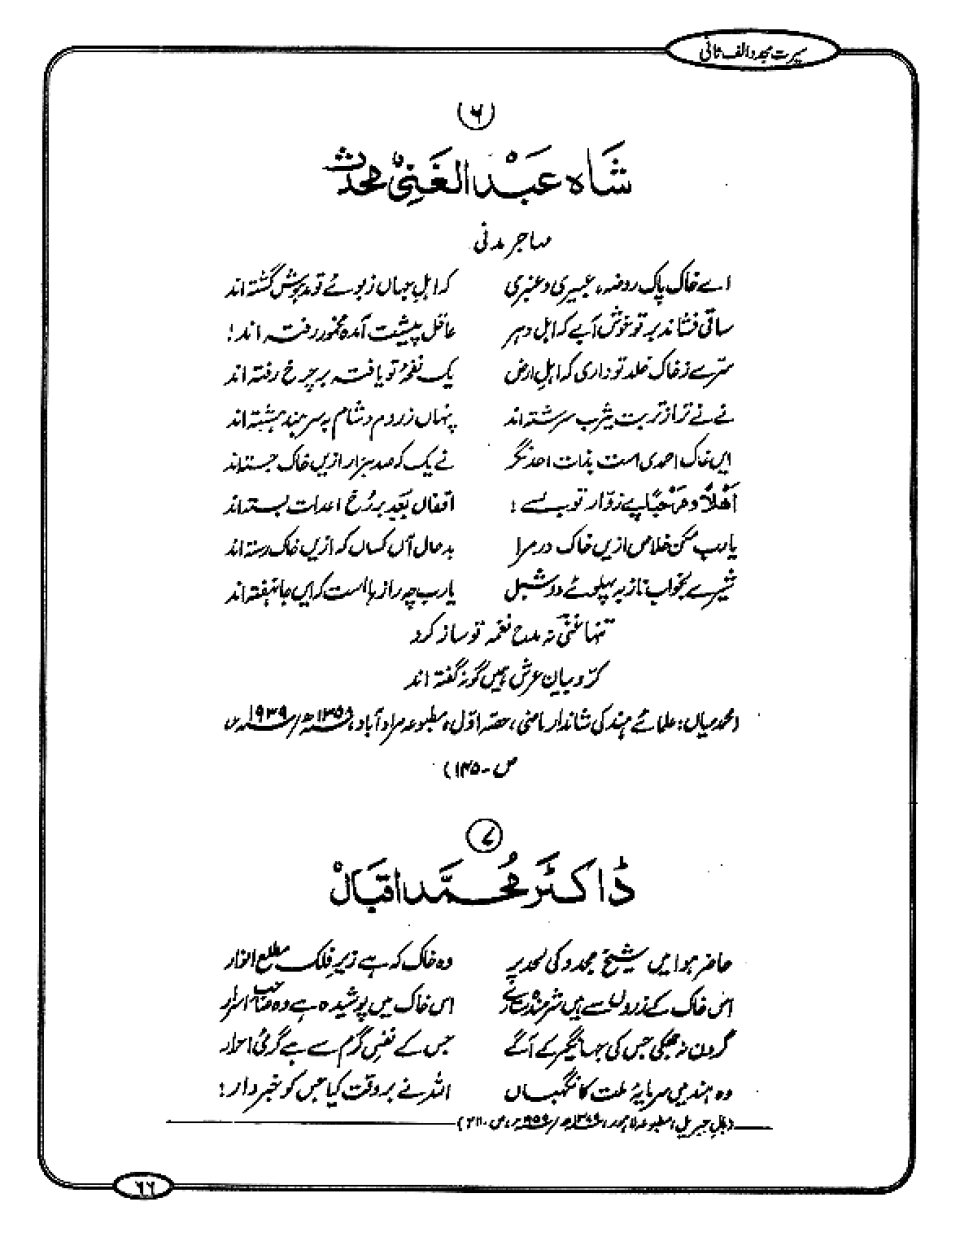 سیرت مجدد الف ثانی
(۶)
شاہ عبدالغنی محدث
مہاجر مدنی
اے خاک پاک روضہ، عبیری و عنبری کہ اہل جہاں ز بوئے تو مدہوش گشتہ اند
ساقی فشاند بر تو خوش آبے کہ اہل دہر عاقل بپیشت آمدہ مخمور رفتہ اند؛
سرّے ز خاک خلد تو داری کہ اہل ارض یک نفخۂ تو یافتہ بر چرخ رفتہ اند
نے نے ترا ز تربت یثرب سرشتہ اند پنہاں ز روم و شام بہ سرہند ہشتہ اند
ایں خاک احمدی است بذات احد نگر نے یک کہ صد ہزار ازیں خاک جستہ اند
اَھْلاً و مَرْحَبًا پے زوّار تو بسے؛ اقفال بُعد بر رُخ اعدات بستہ اند
یارب مکن خلاص ازیں خاک در مرا بدحال آں کساں کہ ازیں خاک رستہ اند
شیرے بخواب ناز بہ پہلوئے دو شبل یارب چہ رازہا است کہ ایں جا نہفتہ اند
تنہا غنی نہ مدح نغمہ تو ساز کرد
کرّوبیان عرش ہمیں گونہ گفتہ اند
(محمد میاں: علمائے ہند کی شاندار ماضی، حصہ اوّل، مطبوعہ مراد آباد، ۱۳۵۸ھ/۱۹۳۹ء،
ص-۱۴۵۰)
(۷)
ڈاکٹر محمد اقبال
حاضر ہوا میں شیخ مجدد کی لحد پر وہ خاک کہ ہے زیر فلک مطلع انوار
اس خاک کے ذروں سے ہیں شرمندہ ستارے اس خاک میں پوشیدہ ہے وہ صاحب اسرار
گردن نہ جھکی جس کی جہانگیر کے آگے جس کے نفس گرم سے ہے گرمئی احرار
وہ ہند میں سرمایۂ ملت کا نگہباں اللہ نے بر وقت کیا جس کو خبردار؛
(بال جبریل، مطبوعہ لاہور، ۱۳۷۹ھ/۱۹۵۹ء، ص-۲۱۱)
۶۶